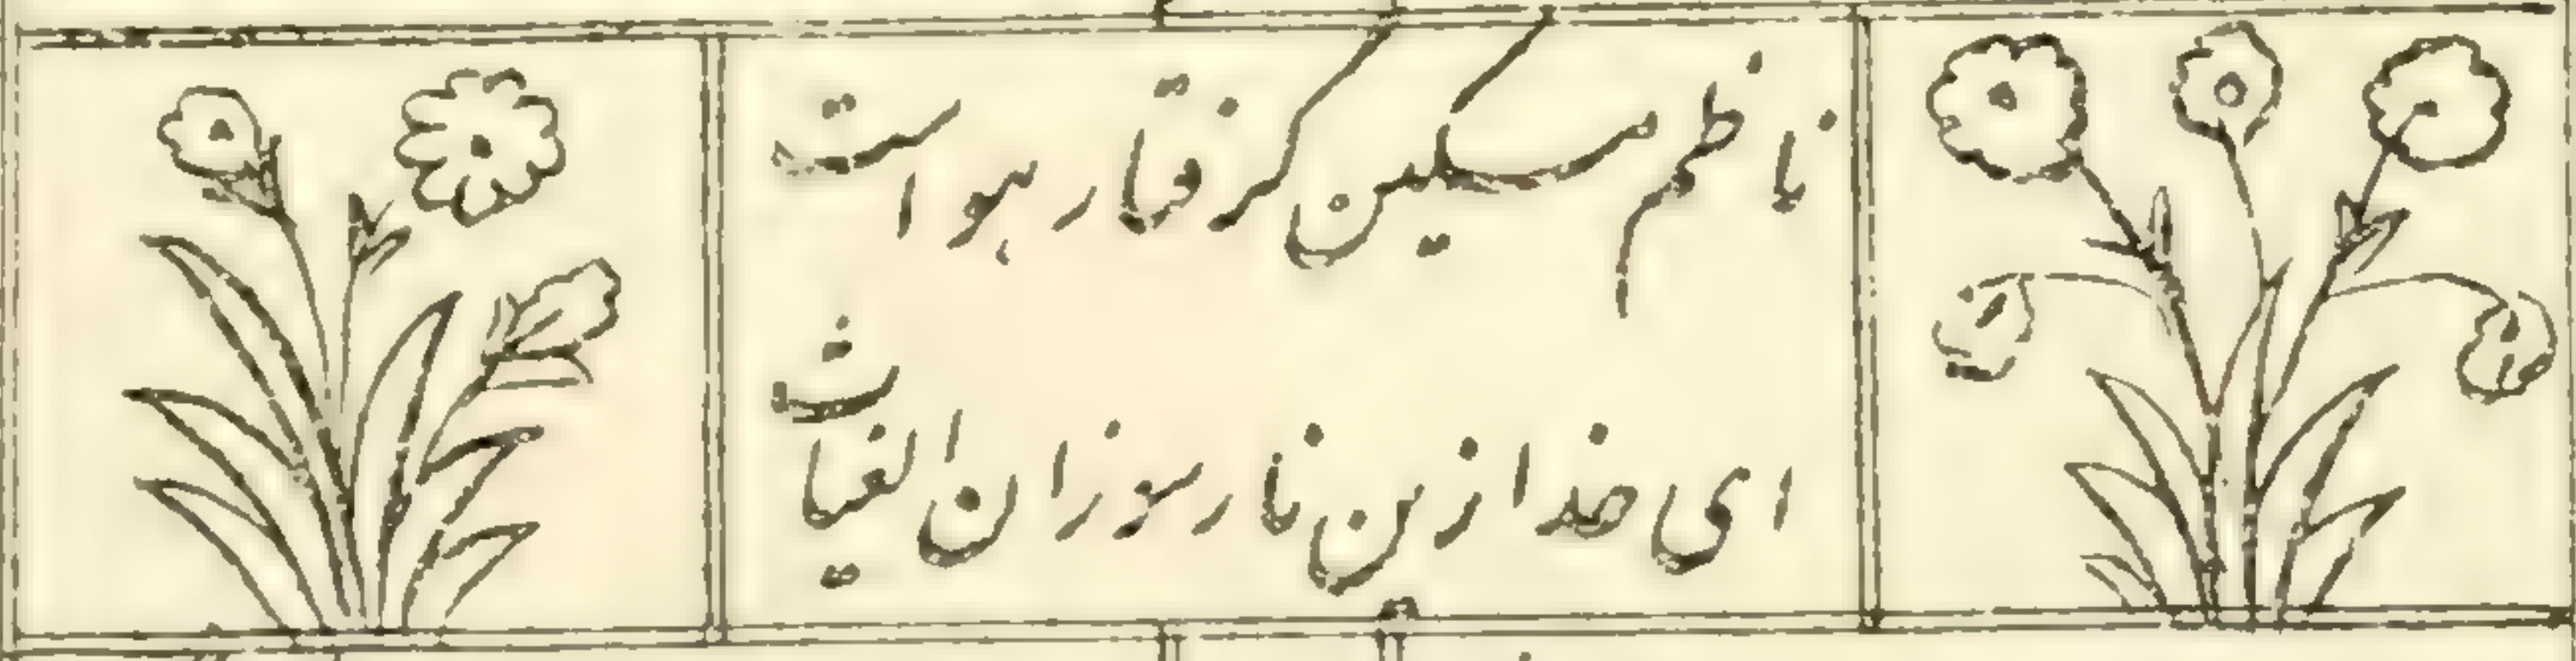 ناظم مسکین گرفتار ہواست
ای خدا زین نار سوزان الغیاث